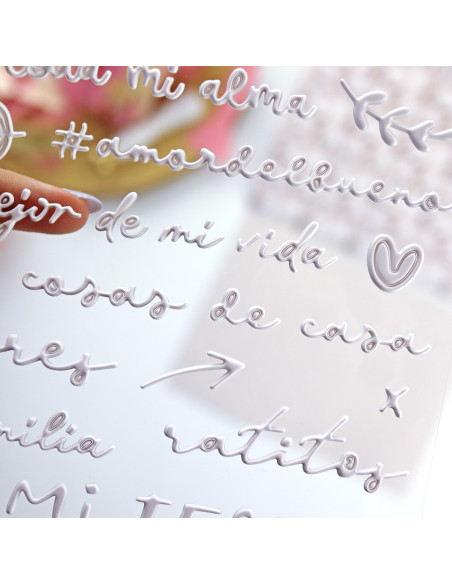 toda mi alma
#amordelbueno
mejor de mi vida
cosas de casa
res
familia
ratitos
x
Mi